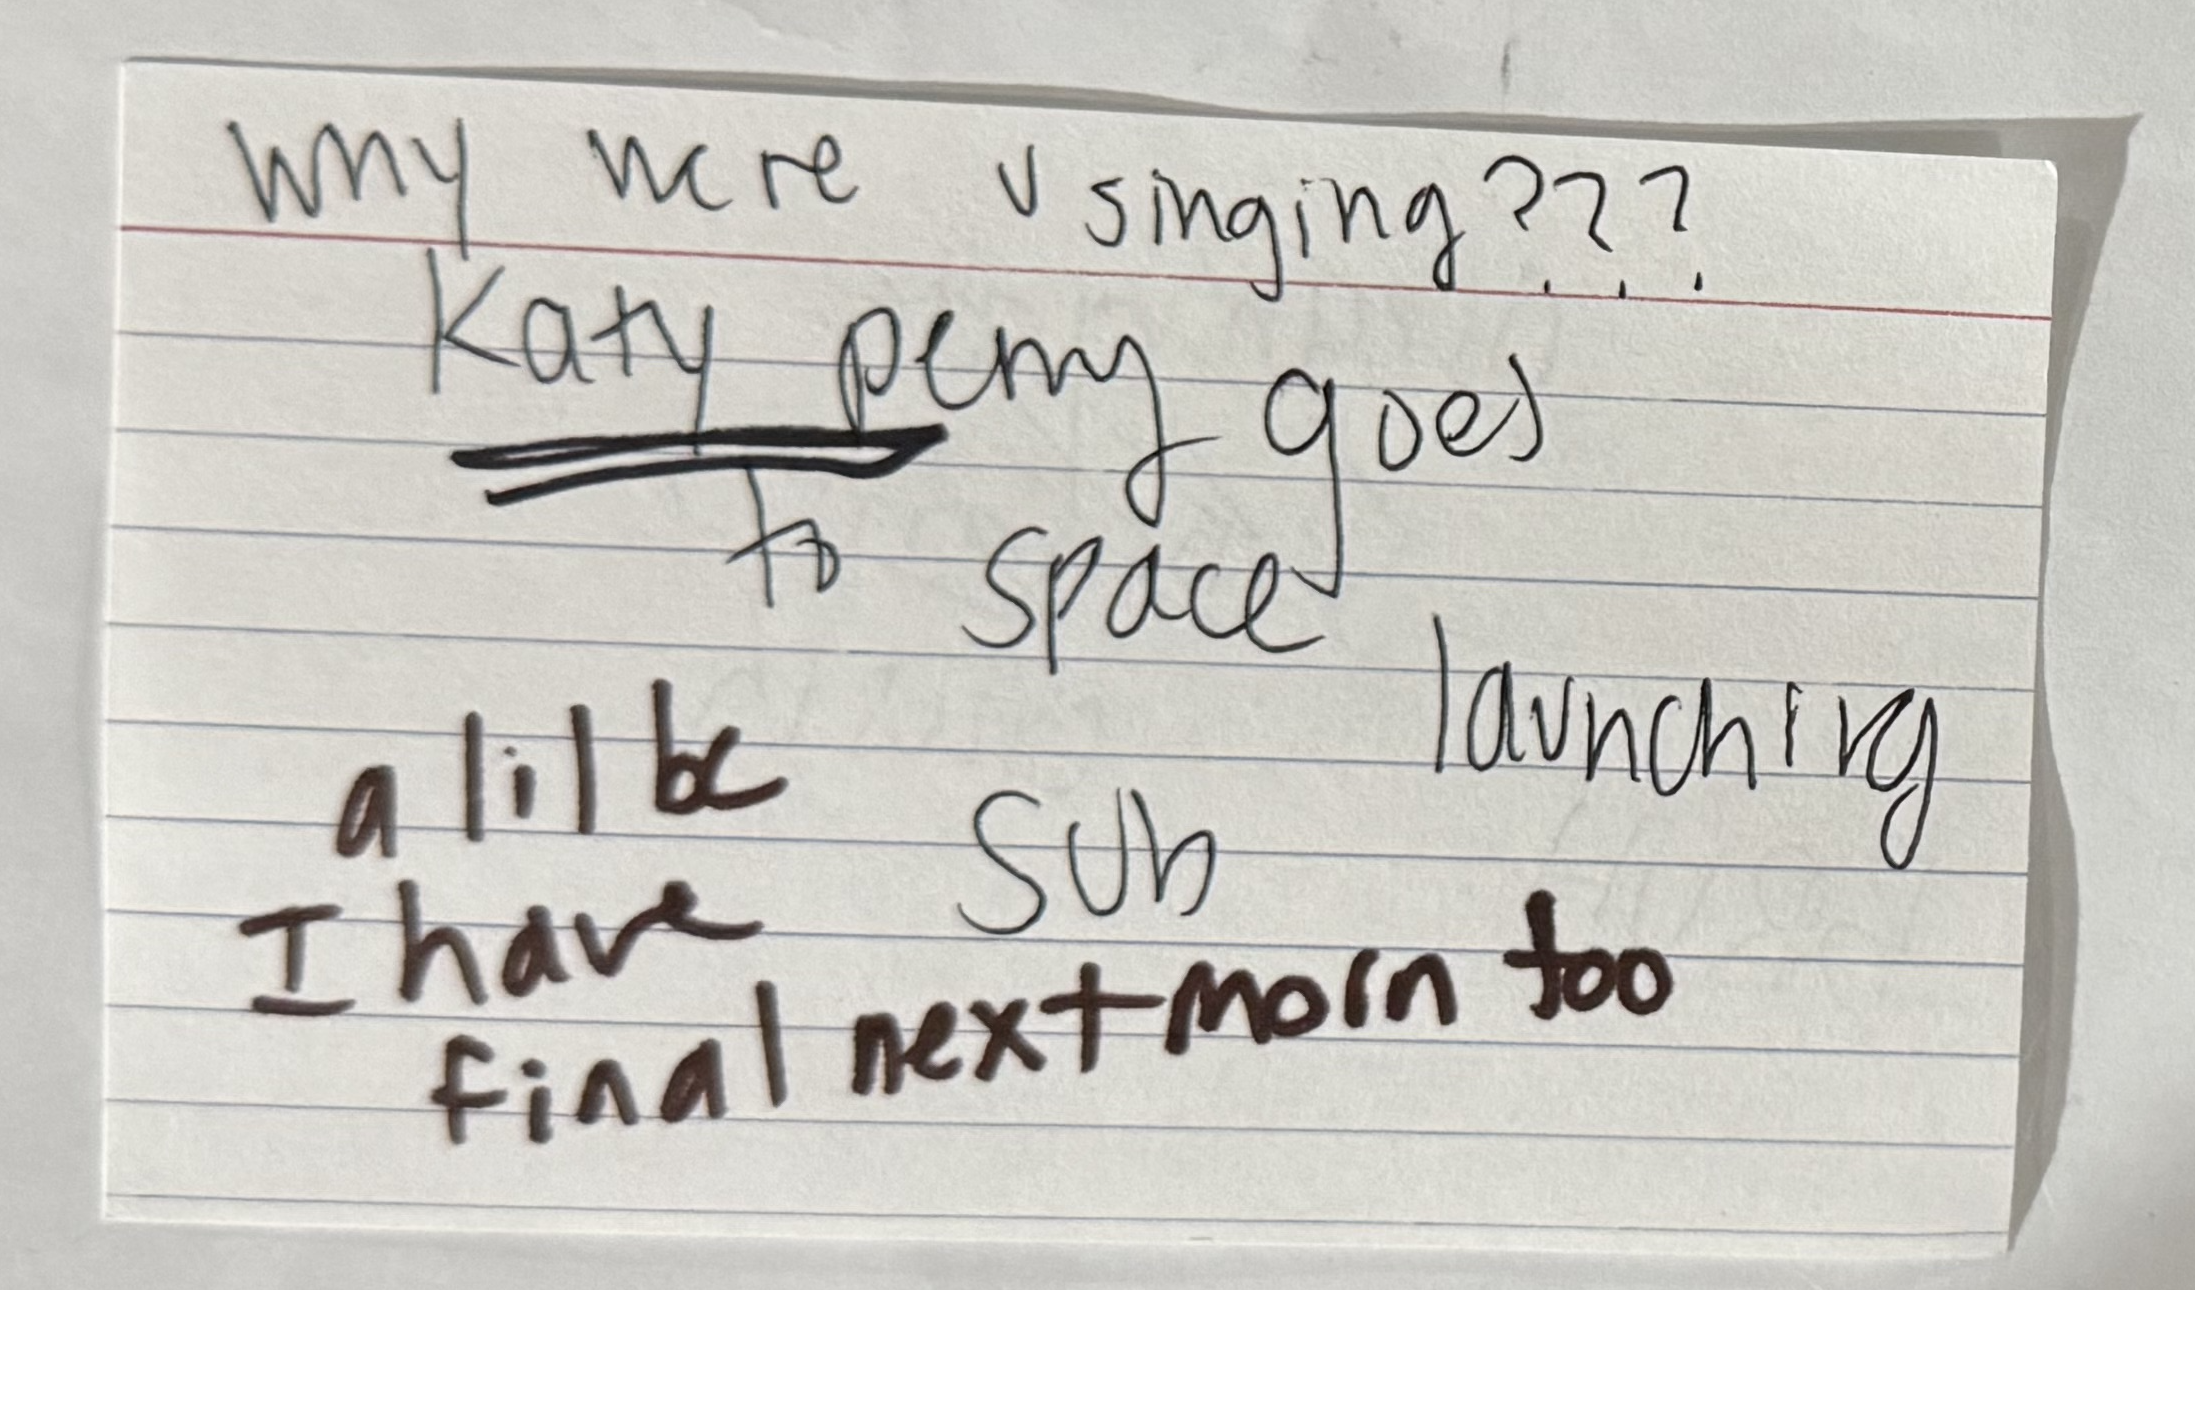 why were u singing???
Katy perry goes
to space
launching
sub
a lil bc
I have
final next morn too